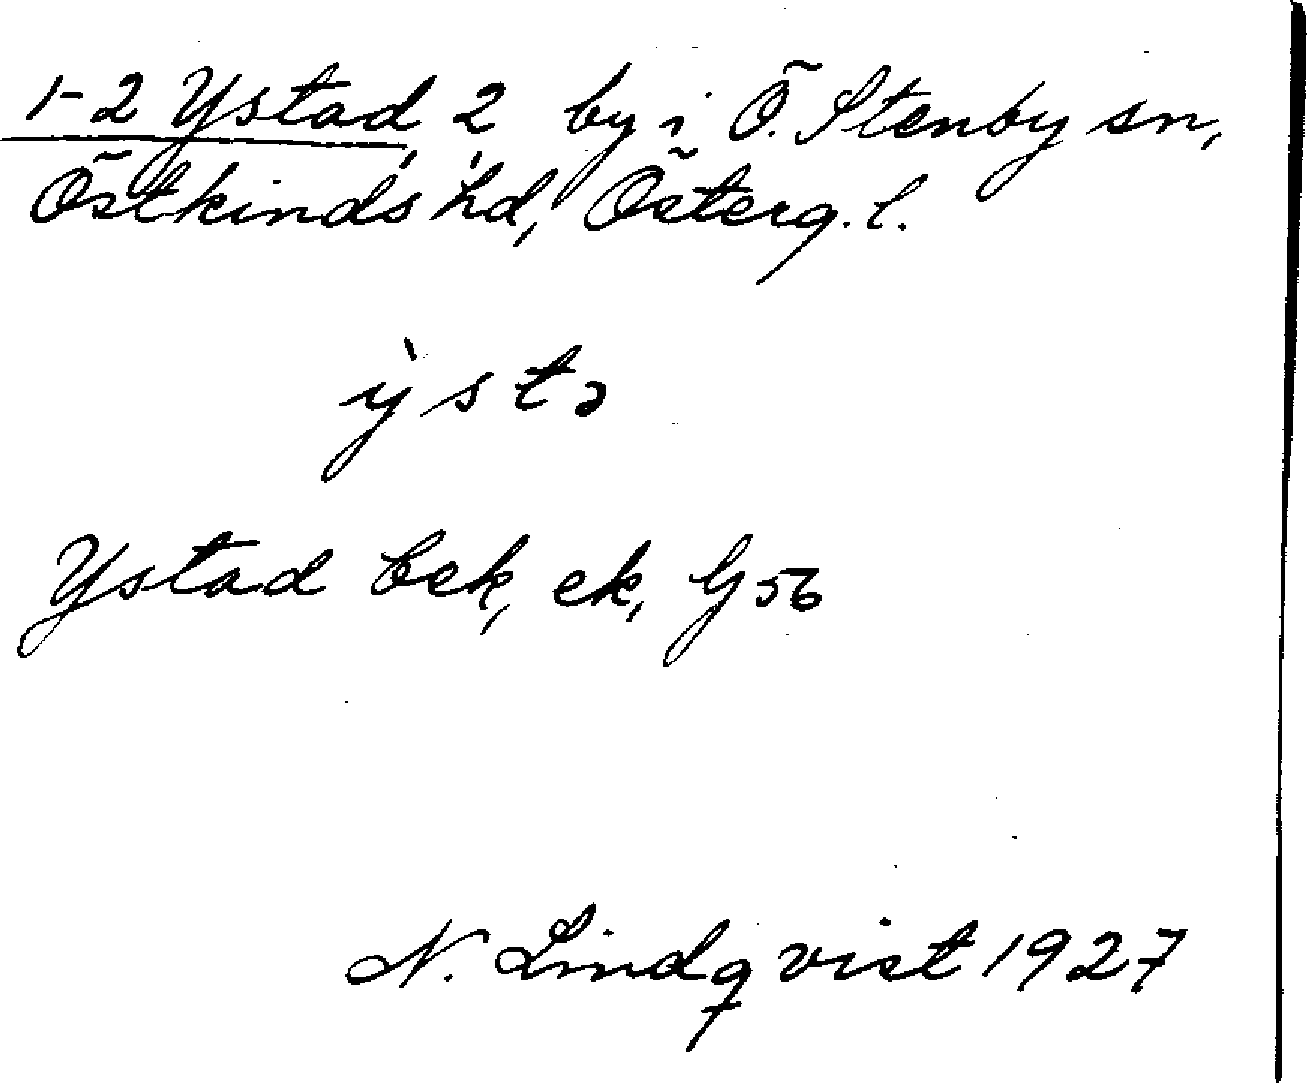 1-2 Ystad 2 by i Ö. Stenby sn,
Östkinds hd, Österg. l.
ỳstə
Ystad bek, ek, G 56
N. Lindqvist 1927